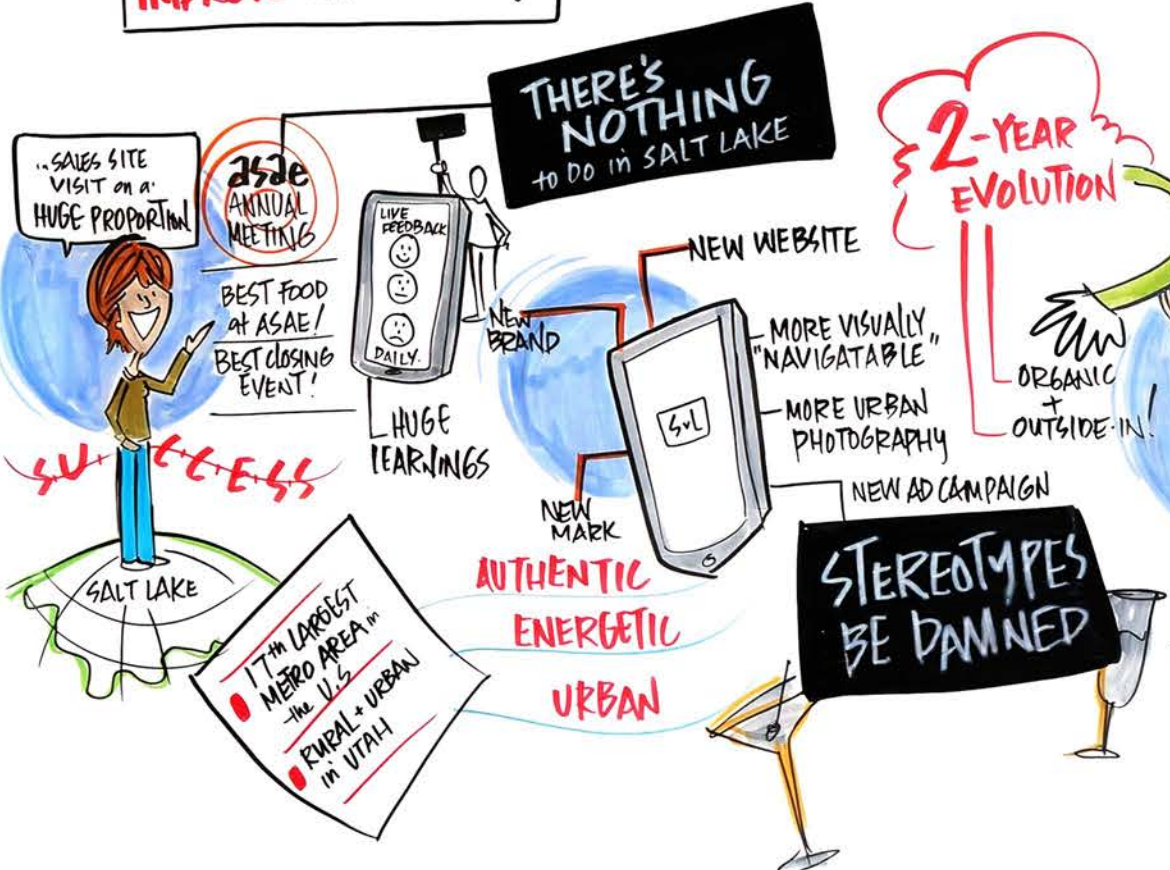 THERE'S
NOTHING
to DO in SALT LAKE
..SALES SITE
VISIT on a
HUGE PROPORTION
asae
ANNUAL
MEETING
BEST FOOD
at ASAE!
BEST CLOSING
EVENT!
LIVE
FEEDBACK
DAILY.
HUGE
LEARNINGS
SUCCESS
SALT LAKE
17th LARGEST
METRO AREA in
the U.S
RURAL + URBAN
in UTAH
NEW WEBSITE
NEW
BRAND
MORE VISUALLY
"NAVIGATABLE"
MORE URBAN
PHOTOGRAPHY
SvL
NEW
MARK
NEW AD CAMPAIGN
AUTHENTIC
ENERGETIC
URBAN
STEREOTYPES
BE DAMNED
2-YEAR
EVOLUTION
ORGANIC
+
OUTSIDE-IN!